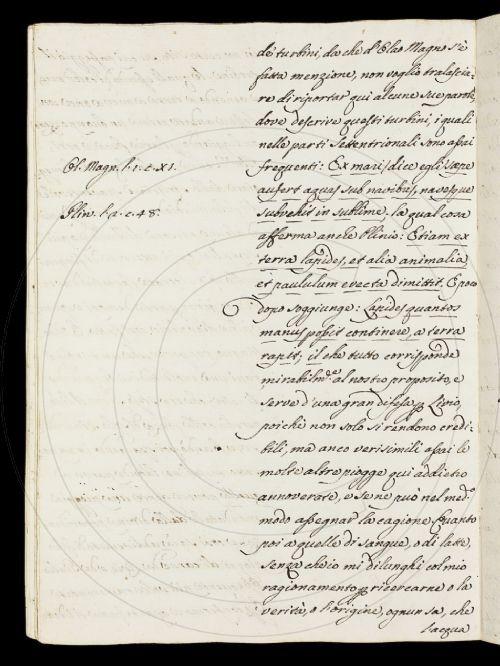 de' turbini, da che d'Olao Magno s'è
fatta menzione, non voglio tralascia-
re di riportar qui alcune sue parole,
dove descrive questi turbini, i quali
nelle parti Settentrionali sono assai
Ol. Magn. l. 1. c. XI.
frequenti: Ex mari, dice egli, sæpe
aufert aquas sub navibus, navesque
Plin. l. 2. c. 48.
subvehit in sublime, la qual cosa
afferma anche Plinio: Etiam ex
terra lapides, et alia animalia,
et paululum evecta dimittit. E poco
dopo soggiunge: Lapides quantos
manus possit continere, a terra
rapit; il che tutto corrisponde
mirabilm.e al nostro proposito, e
serve d'una gran difesa p Livio,
poichè non solo si rendono credi-
bili, ma anco verisimili assai le
molte altre piogge qui addietro
annoverate, e se ne può nel med.o
modo assegnar la cagione. Quanto
poi a quelle di sangue, o di latte,
senza che io mi dilunghi col mio
ragionamento p ricercarne o la
verità, o l'origine, ognun sa, che
l'acqua